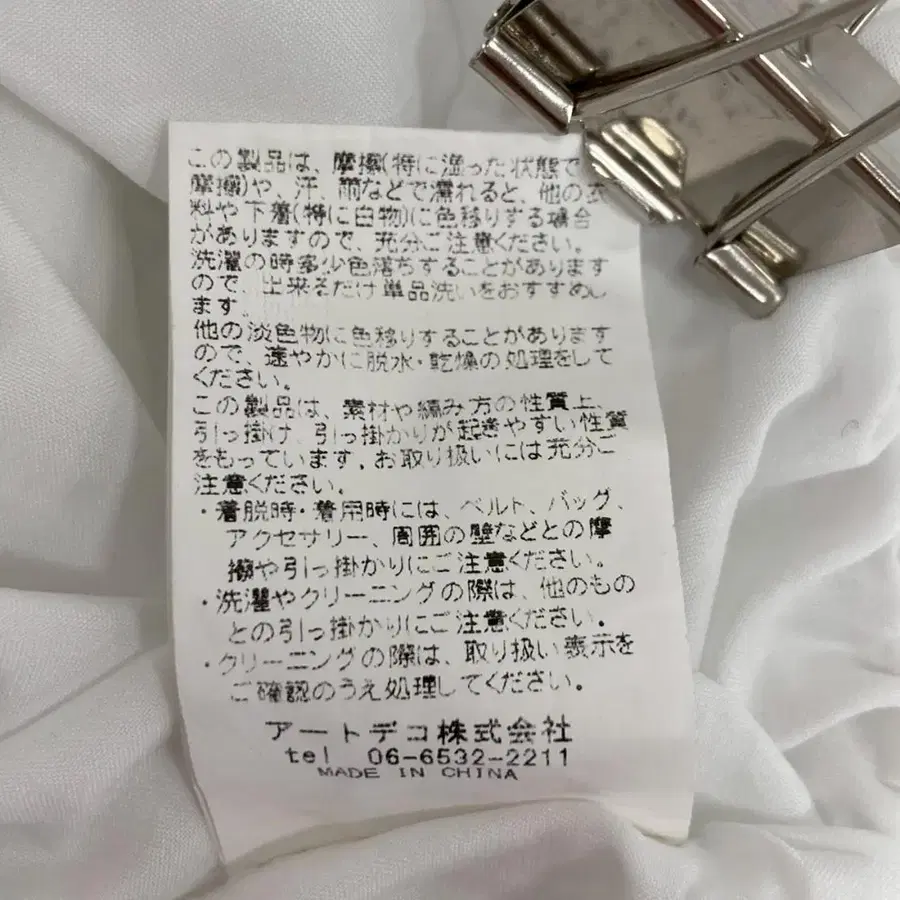 この製品は、摩擦(特に湿った状態で
摩擦)や、汗、雨などで濡れると、他の衣
料や下着(特に白物)に色移りする場合
がありますので、充分ご注意ください。
洗濯の時多少色落ちすることがあります
ので、出来るだけ単品洗いをおすすめし
ます。
他の淡色物に色移りすることがあります
ので、速やかに脱水・乾燥の処理をして
ください。
この製品は、素材や編み方の性質上、
引っ掛け、引っ掛かりが起きやすい性質
をもっています。お取り扱いには充分ご
注意ください。
・着脱時・着用時には、ベルト、バッグ、
アクセサリー、周囲の壁などとの摩
擦や引っ掛かりにご注意ください。
・洗濯やクリーニングの際は、他のもの
との引っ掛かりにご注意ください。
・クリーニングの際は、取り扱い表示を
ご確認のうえ処理してください。
アートデコ株式会社
tel 06-6532-2211
MADE IN CHINA